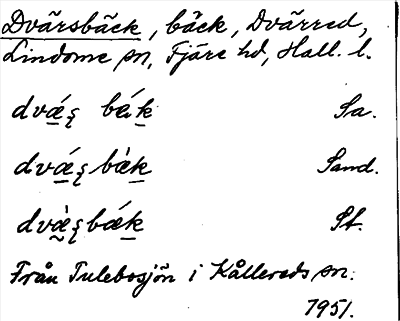 Dvärsbäck, bäck, Dvärred,
Lindome sn, Fjäre hd, Hall. l.
dvǽ̱ȿ bǽḵ Sa.
dvǽ̱ȿbæ̀ḵ Sand.
dvæ̱̀ȿbǽḵ St.
Från Tulebosjön i Kållereds sn.
1951.